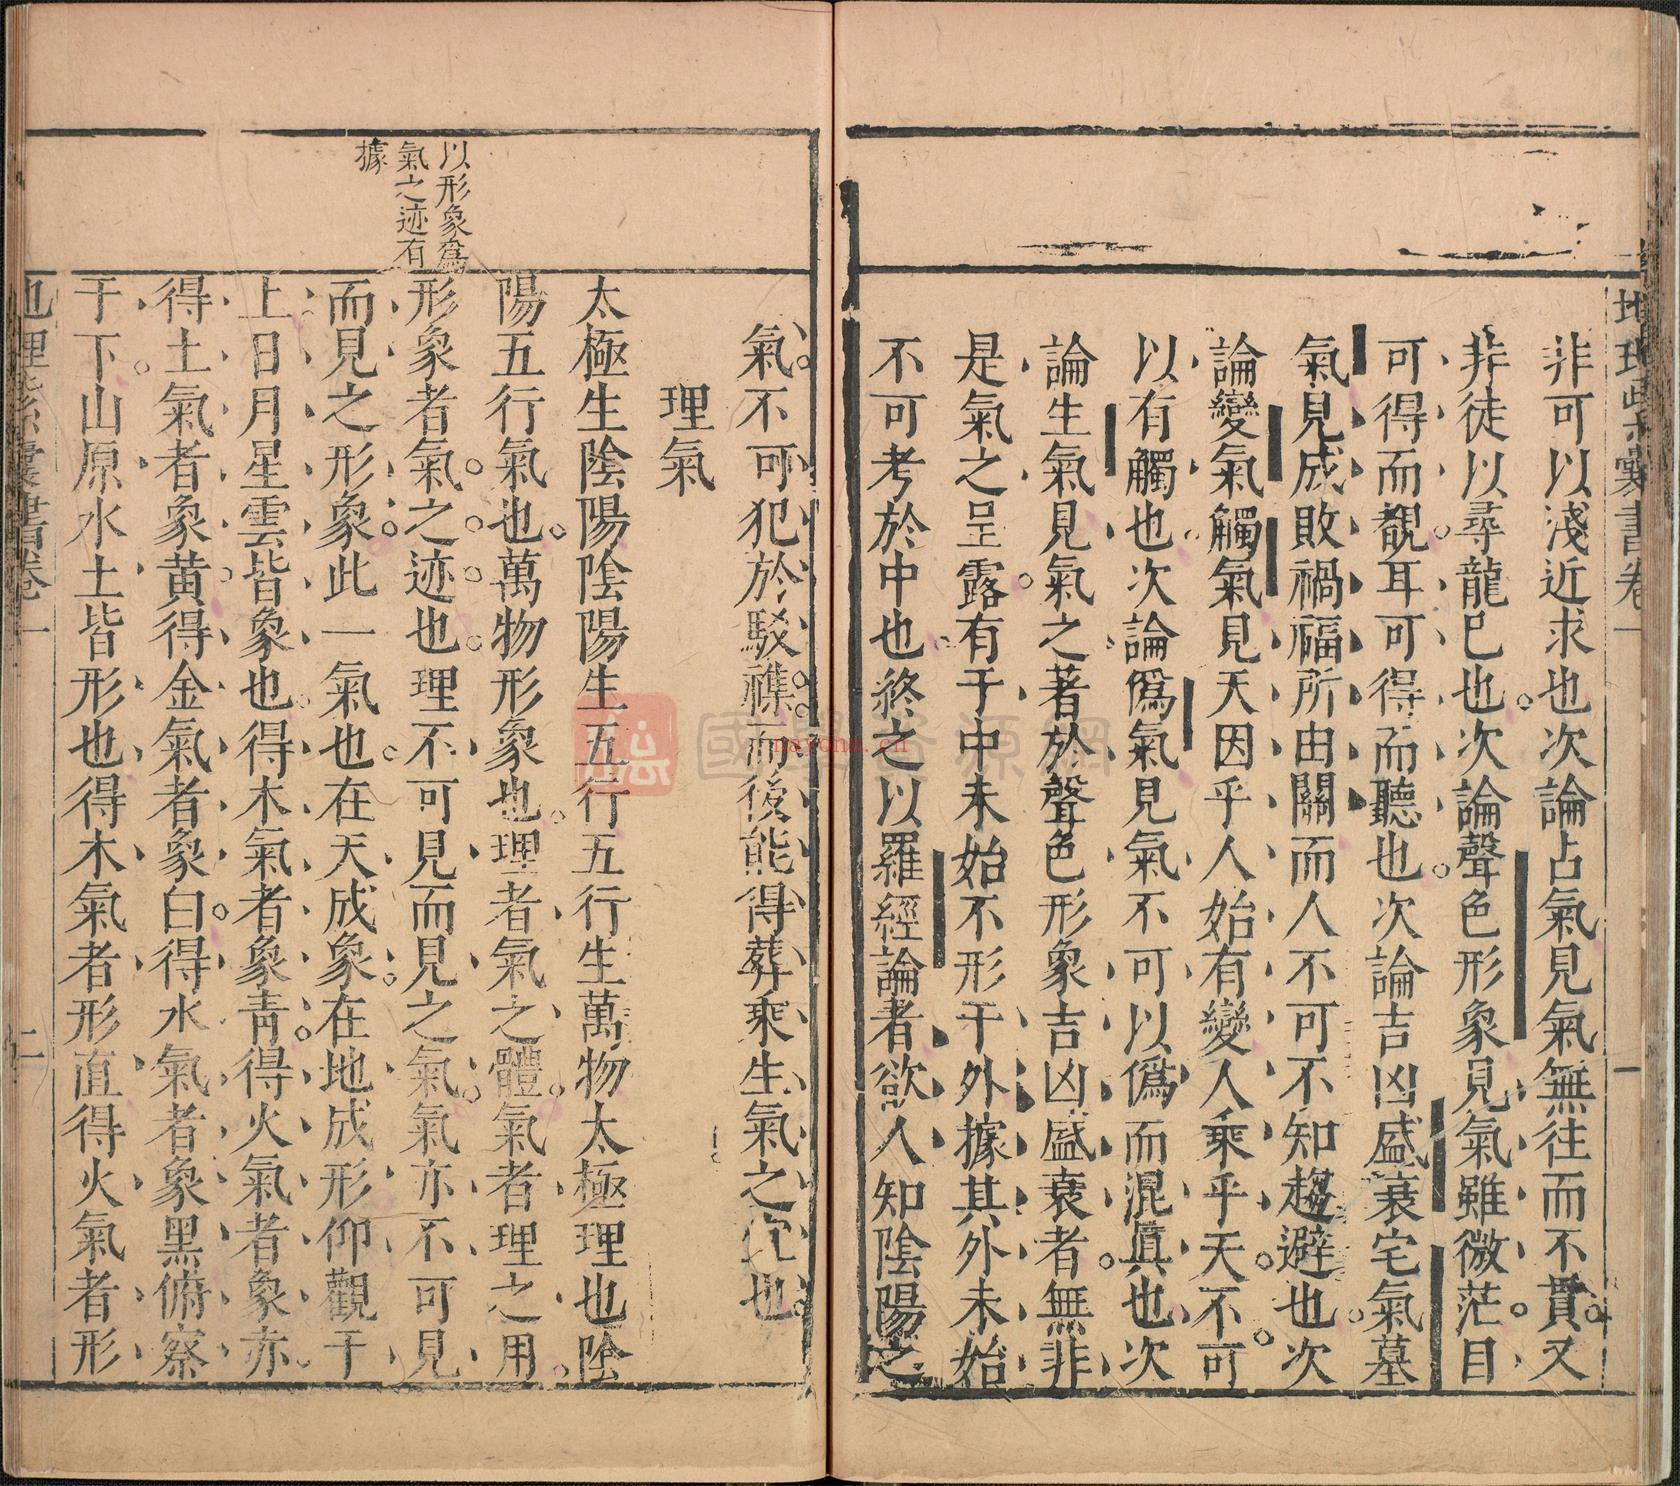 地理紫囊書卷一
一
非可以淺近求也次論占氣見氣無往而不貫又
非徒以尋龍巳也次論聲色形象見氣雖微茫目
可得而覩耳可得而聽也次論吉凶盛衰宅氣墓
氣見成敗禍福所由關而人不可不知趨避也次
論變氣觸氣見天因乎人始有變人乘乎天不可
以有觸也次論僞氣見氣不可以僞而混眞也次
論生氣見氣之著於聲色形象吉凶盛衰者無非
是氣之呈露有于中未始不形于外據其外未始
不可考於中也終之以羅經論者欲人知陰陽之
氣不可犯於駁襍而後能得葬乘生氣之也
理氣
太極生陰陽陰陽生五行五行生萬物太極理也陰
陽五行氣也萬物形象也理者氣之體氣者理之用
形象者氣之迹也理不可見而見之氣氣亦不可見
而見之形象此一氣也在天成象在地成形仰觀于
上日月星雲皆象也得木氣者象青得火氣者象赤
得土氣者象黄得金氣者象白得水氣者象黑俯察
于下山原水土皆形也得木氣者形直得火氣者形
以形象爲
氣之迹有
據
地理紫囊書卷一
二
國學資源網
nayona.cn